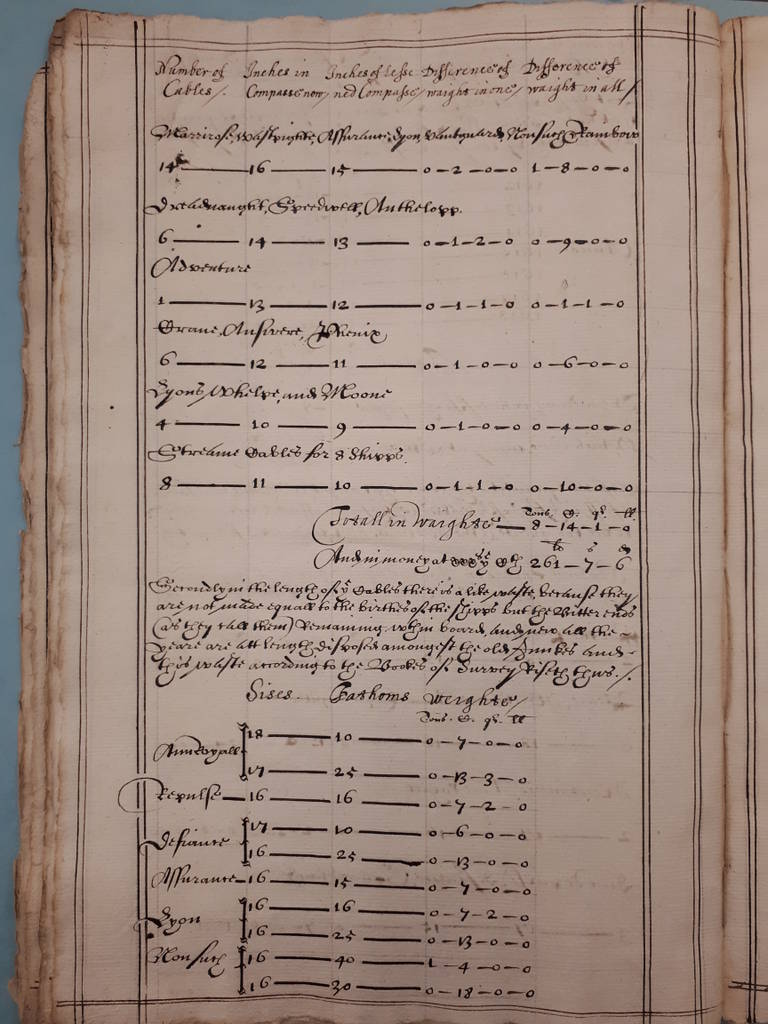 Number of Inches in Inches of lesse Difference of Difference of
Cables /. Compasse now / ned Compasse / waight in one / waight in all /.
Marrirose, Wastspighte, Assurance, Lyon, Vantguard, Nonsuch, & Rainbow
14 — 16 — 15 — 0 – 2 – 0 – 0 1 – 8 – 0 – 0
Dreadnaught, Speedwell, Anthelopp.
6 — 14 — 13 — 0 – 1 – 2 – 0 0 – 9 – 0 – 0
Adventure
1 — 13 — 12 — 0 – 1 – 1 – 0 0 – 1 – 1 – 0
Crane, Answere, Phenix
6 — 12 — 11 — 0 – 1 – 0 – 0 0 – 6 – 0 – 0
Lyons Whelpe, and Moone
4 — 10 — 9 — 0 – 1 – 0 – 0 0 – 4 – 0 – 0
Streame Cables for 8 shipps.
8 — 11 — 10 — 0 – 1 – 1 – 0 0 – 10 – 0 – 0
Tons. C. qr. ll
Totall in waighte — 8 – 14 – 1 – 0
li s d
And in money at ye C 261 – 7 – 6
Secondly in the length of ye Cables there is a like waste, because they
are not made equall to the birthes of the shipps but the Bitter ends
(as they call them) Remaining within board, and new all the
yeare are att length disposed amongest the old Junkes and
this waste according to the Bookes of Survey Riseth thus. /.
Sises. Fathoms weighte /
Tons. C. qr. ll
18 — 10 — 0 – 7 – 0 – 0
Anneroyall
17 — 25 — 0 – 13 – 3 – 0
Repulse — 16 — 16 — 0 – 7 – 2 – 0
17 — 10 — 0 – 6 – 0 – 0
Defiance
16 — 25 — 0 – 13 – 0 – 0
Assurance – 16 — 15 — 0 – 7 – 0 – 0
16 — 16 — 0 – 7 – 2 – 0
Lyon
16 — 25 — 0 – 13 – 0 – 0
Nonsuch 16 — 40 — 1 – 4 – 0 – 0
16 — 30 — 0 – 18 – 0 – 0